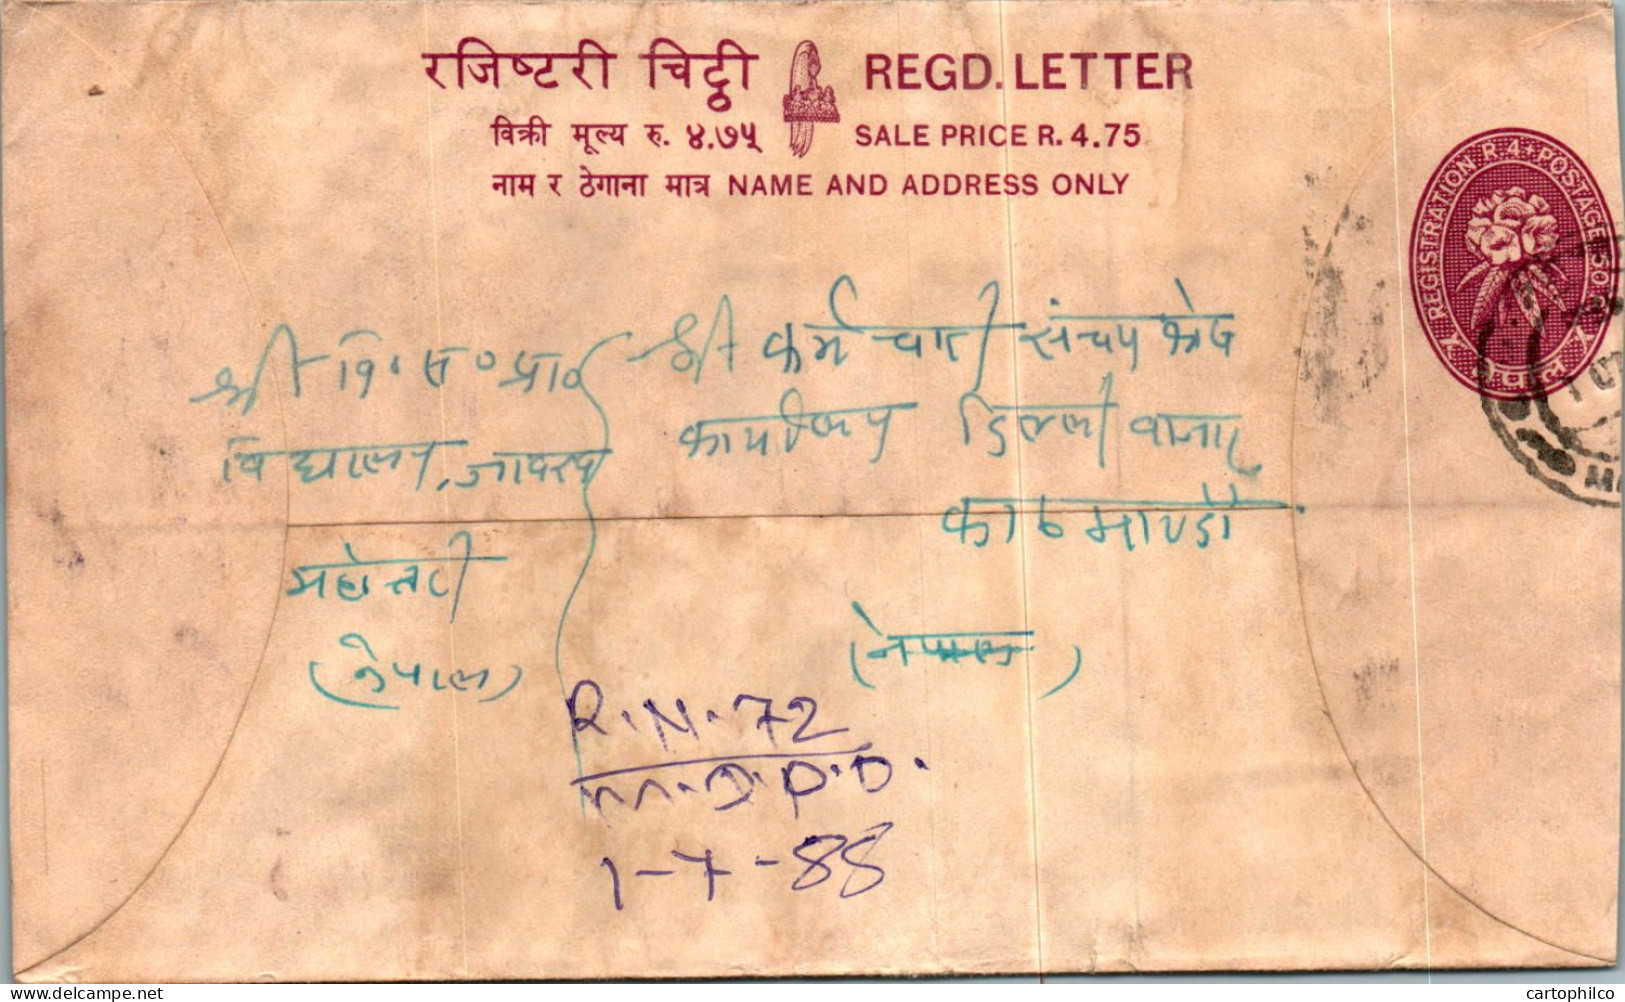 रजिष्टरी चिट्ठी REGD. LETTER
विक्री मूल्य रु. ४.७५ SALE PRICE R. 4.75
नाम र ठेगाना मात्र NAME AND ADDRESS ONLY
REGISTRATION R.4 + POSTAGE
नेपाल
श्री नि. स. प्रा.
विद्यालय,
महोत्तरी
(नेपाल)
श्री कर्मचारी संचय कोष
कार्यालय डिल्ली बजार
काठमाण्डौ
(नेपाल)
R.N. 72
M.D.P.O.
1-7-88
cartophilco